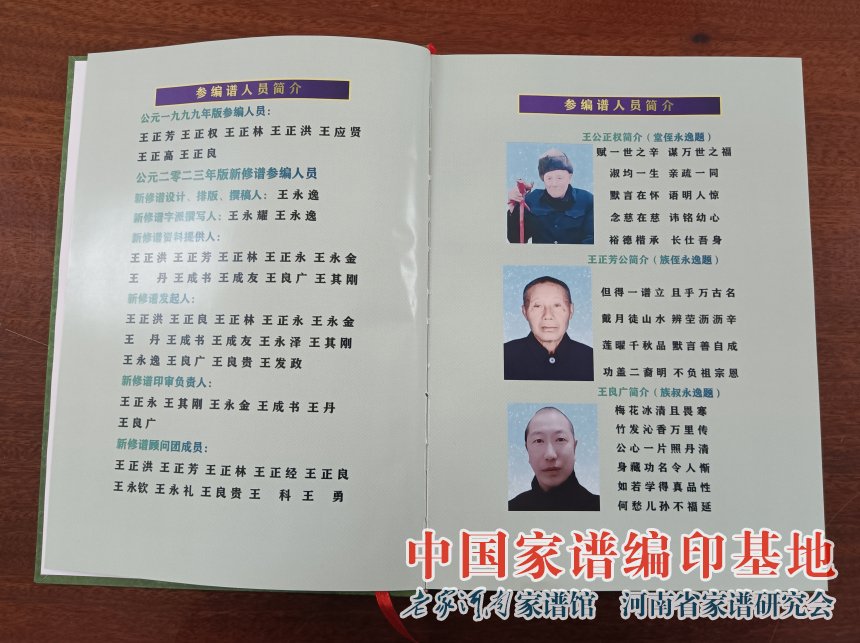 参编谱人员简介
公元一九九九年版参编人员：
王正芳 王正权 王正林 王正洪 王应贤
王正高 王正良
公元二零二三年版新修谱参编人员
新修谱设计、排版、撰稿人： 王永逸
新修谱字派撰写人：王永耀 王永逸
新修谱资料提供人：
王正洪 王正芳 王正林 王正永 王永金
王 丹 王成书 王成友 王良广 王其刚
新修谱发起人：
王正洪 王正良 王正林 王正永 王永金
王 丹 王成书 王成友 王永泽 王其刚
王永逸 王良广 王良贵 王发政
新修谱印审负责人：
王正永 王其刚 王永金 王成书 王丹
王良广
新修谱顾问团成员：
王正洪 王正芳 王正林 王正经 王正良
王永钦 王永礼 王良贵 王 科 王 勇
参编谱人员简介
王公正权简介（堂侄永逸题）
赋一世之辛 谋万世之福
淑均一生 亲疏一同
默言在怀 语明人惊
念慈在慈 讳铭幼心
裕德楷承 长仕吾身
王正芳公简介（族侄永逸题）
但得一谱立 且乎万古名
戴月徒山水 辨茔沥沥辛
莲曜千秋品 默言善自成
功盖二裔明 不负祖宗恩
王良广简介（族叔永逸题）
梅花冰清且畏寒
竹发沁香万里传
公心一片照丹清
身藏功名令人惭
如若学得真品性
何愁儿孙不福延
中国家谱编印基地
老家河南家谱馆 河南省家谱研究会